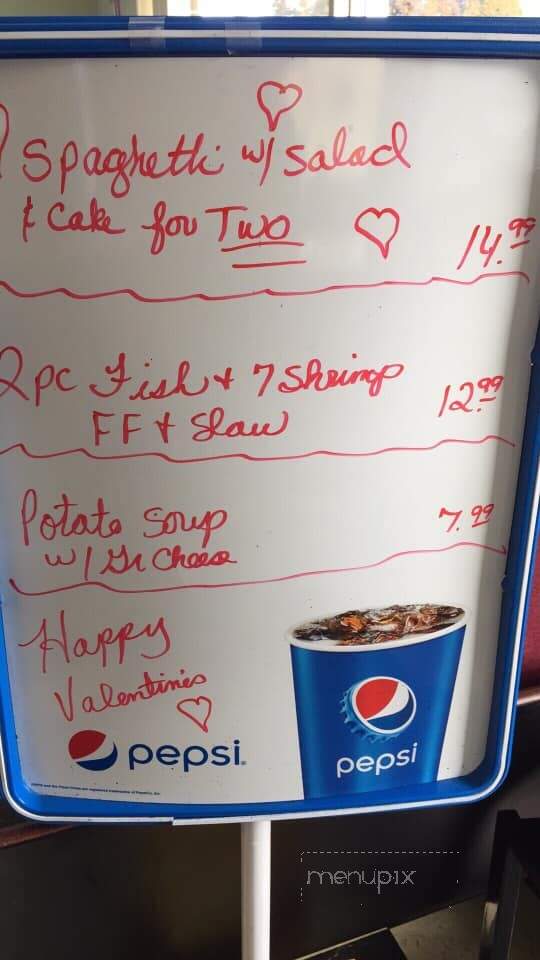 Spaghetti w/ Salad
& Cake for Two
14.99
2pc Fish + 7 Shrimp
12.99
FF + Slaw
Potato Soup
7.99
w/ Gr Cheese
Happy
Valentines
pepsi.
pepsi
menupix